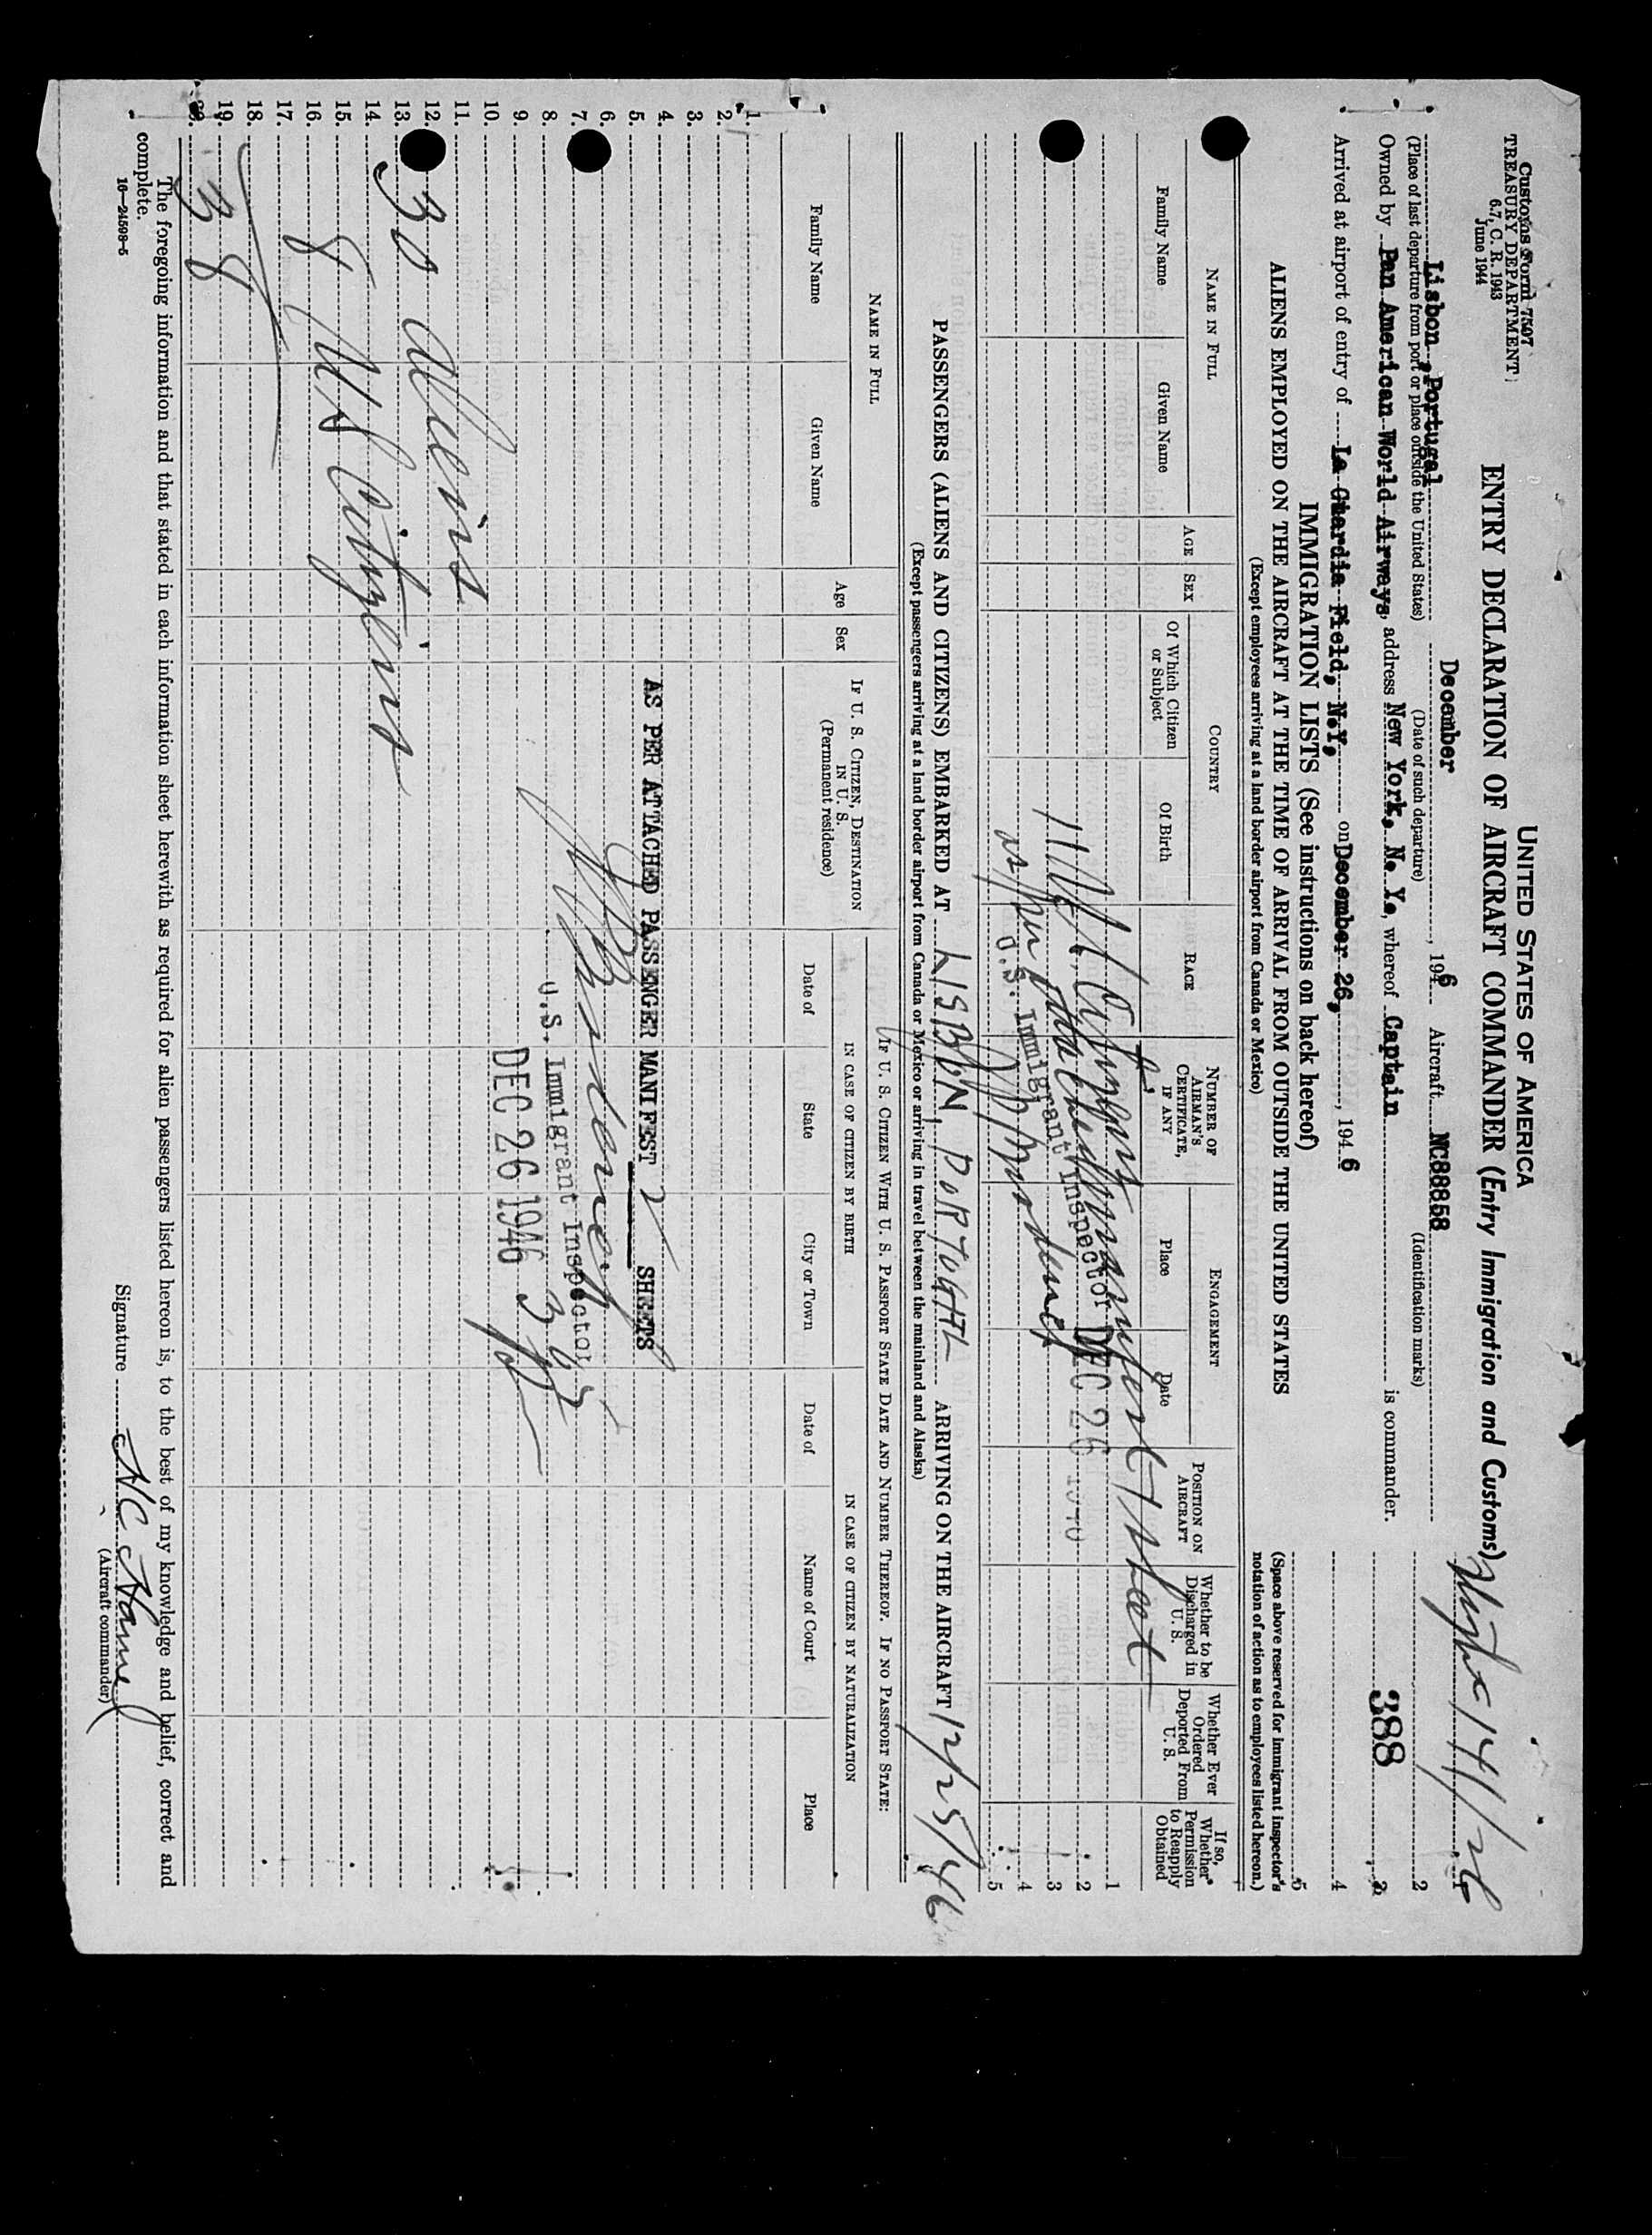 Customs Form 7507
TREASURY DEPARTMENT
6.7, C. R. 1943
June 1944
UNITED STATES OF AMERICA
ENTRY DECLARATION OF AIRCRAFT COMMANDER (Entry Immigration and Customs)
Flight 141/26
Lisbon, Portugal December , 1946 Aircraft NC88858
(Place of last departure from port or place outside the United States) (Date of such departure) (Identification marks)
Owned by Pan American World Airways, address New York, N. Y., whereof Captain is commander.
388
Arrived at airport of entry of La Guardia Field, N.Y, on December 26, , 1946
1
2
3
4
5
IMMIGRATION LISTS (See instructions on back hereof)
(Space above reserved for immigrant inspector's notation of action as to employees listed hereon.)
ALIENS EMPLOYED ON THE AIRCRAFT AT THE TIME OF ARRIVAL FROM OUTSIDE THE UNITED STATES
(Except employees arriving at a land border airport from Canada or Mexico)
NAME IN FULL
Family Name
Given Name
AGE
SEX
COUNTRY
Of Which Citizen or Subject
Of Birth
RACE
NUMBER OF AIRMAN'S CERTIFICATE, IF ANY
ENGAGEMENT
Place
Date
POSITION ON AIRCRAFT
Whether to be Discharged in U. S.
Whether Ever Ordered Deported From U. S.
If so, Whether Permission to Reapply Obtained
1
2
3
4
5
as per attached manifest sheet
U.S. Immigrant Inspector DEC 26 1946
PASSENGERS (ALIENS AND CITIZENS) EMBARKED AT LISBON, PORTUGAL ARRIVING ON THE AIRCRAFT 12/25/46
(Except passengers arriving at a land border airport from Canada or Mexico or arriving in travel between the mainland and Alaska)
NAME IN FULL
Family Name
Given Name
Age
Sex
IF U. S. CITIZEN, DESTINATION IN U. S.
(Permanent residence)
IF U. S. CITIZEN WITH U. S. PASSPORT STATE DATE AND NUMBER THEREOF. IF NO PASSPORT STATE:
IN CASE OF CITIZEN BY BIRTH
Date of
State
City or Town
IN CASE OF CITIZEN BY NATURALIZATION
Date of
Name of Court
Place
1.
2.
3.
4.
5. AS PER ATTACHED PASSENGER MANIFEST 2 SHEETS
6.
7.
8. U.S. Immigrant Inspector
9. DEC 26 1946
10.
11.
12. 30 Aliens
13.
14.
15.
16. 8 US Citizens
17.
18.
19. 38
20.
The foregoing information and that stated in each information sheet herewith as required for alien passengers listed hereon is, to the best of my knowledge and belief, correct and
complete.
Signature
(Aircraft commander)
16—24598-5